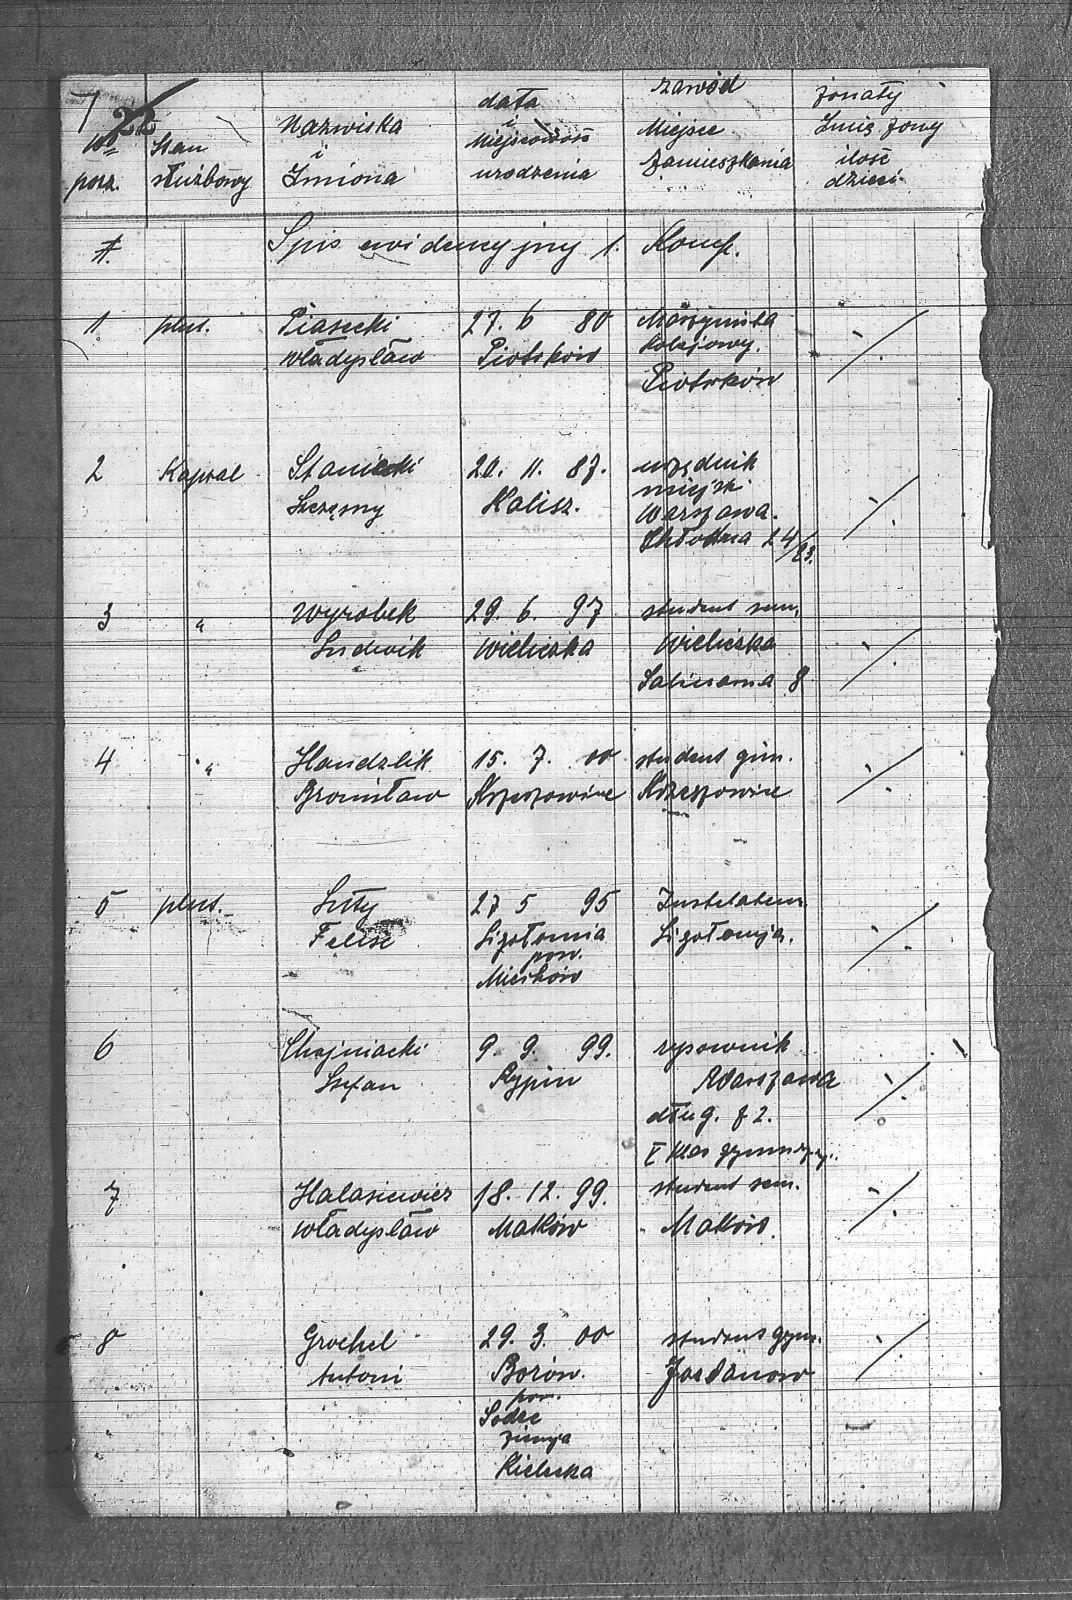 7 22
No porz. Stan służbowy Nazwiska i Imiona data i Miejscowość urodzenia zawód Miejsce Zamieszkania żonaty Imię żony ilość dzieci
Spis ewidencyjny 1. Komp.
1 plut. Piasecki 27. 6 80 Maszynista
Władysław Piotrków kolejowy.
Piotrków
2 Kapral Staniecki 20. 11. 87. urzędnik
Szczęsny Kalisz. miejski
Warszawa.
Chłodna 24/23.
3 " Wyrobek 29. 6. 97 student sem.
Ludwik Wieliczka Wieliczka
Salinarna 8
4 " Handzlik 15. 7. 00 student gim.
Bronisław Krzeszowice Krzeszowice
5 plut. Luty 27 5 95 Instalator
Feliks
pow.
Miechów
6 Chojniacki 9. 9. 99. rysownik
Stefan Rypin Warszawa
dług.
V klas
7 Halasiewicz 18. 12. 99. student sem.
Władysław Maków Maków.
8 Groebel 29. 3. 00 student gym.
Antoni Borów. Jordanow
pow.
ziemja
Kielecka